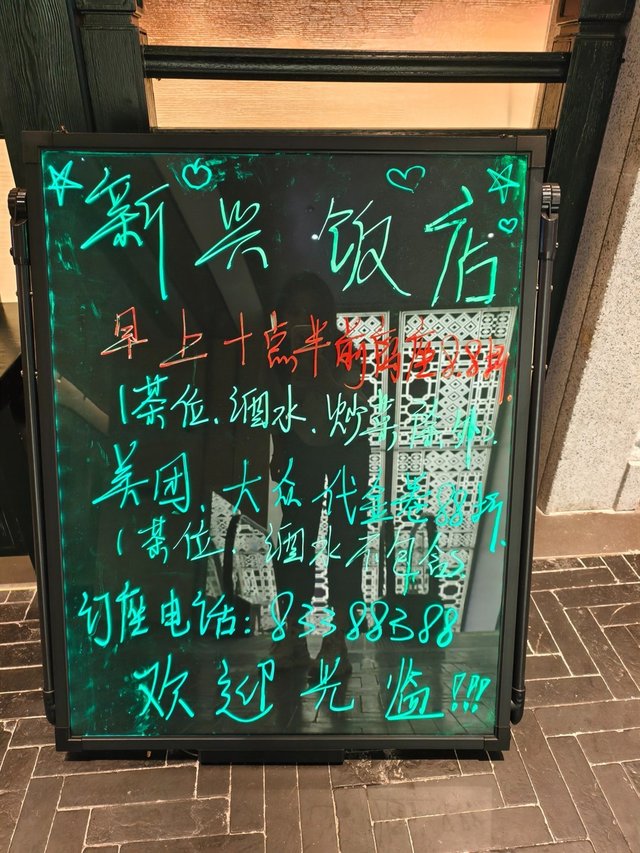 新兴饭店
早上十点半前座8折
(茶位、酒水、炒菜除外.
美团、大众代金卷88折
(茶位、酒水不包含.
订座电话:83388388
欢迎光监!!!